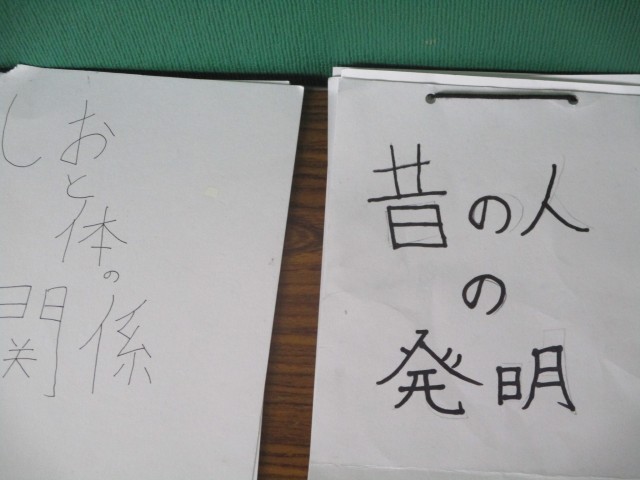 しお
と
体の
関係
昔の人
の
発明